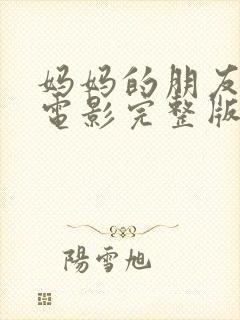 妈妈的朋友
電影完整版
陽雪旭